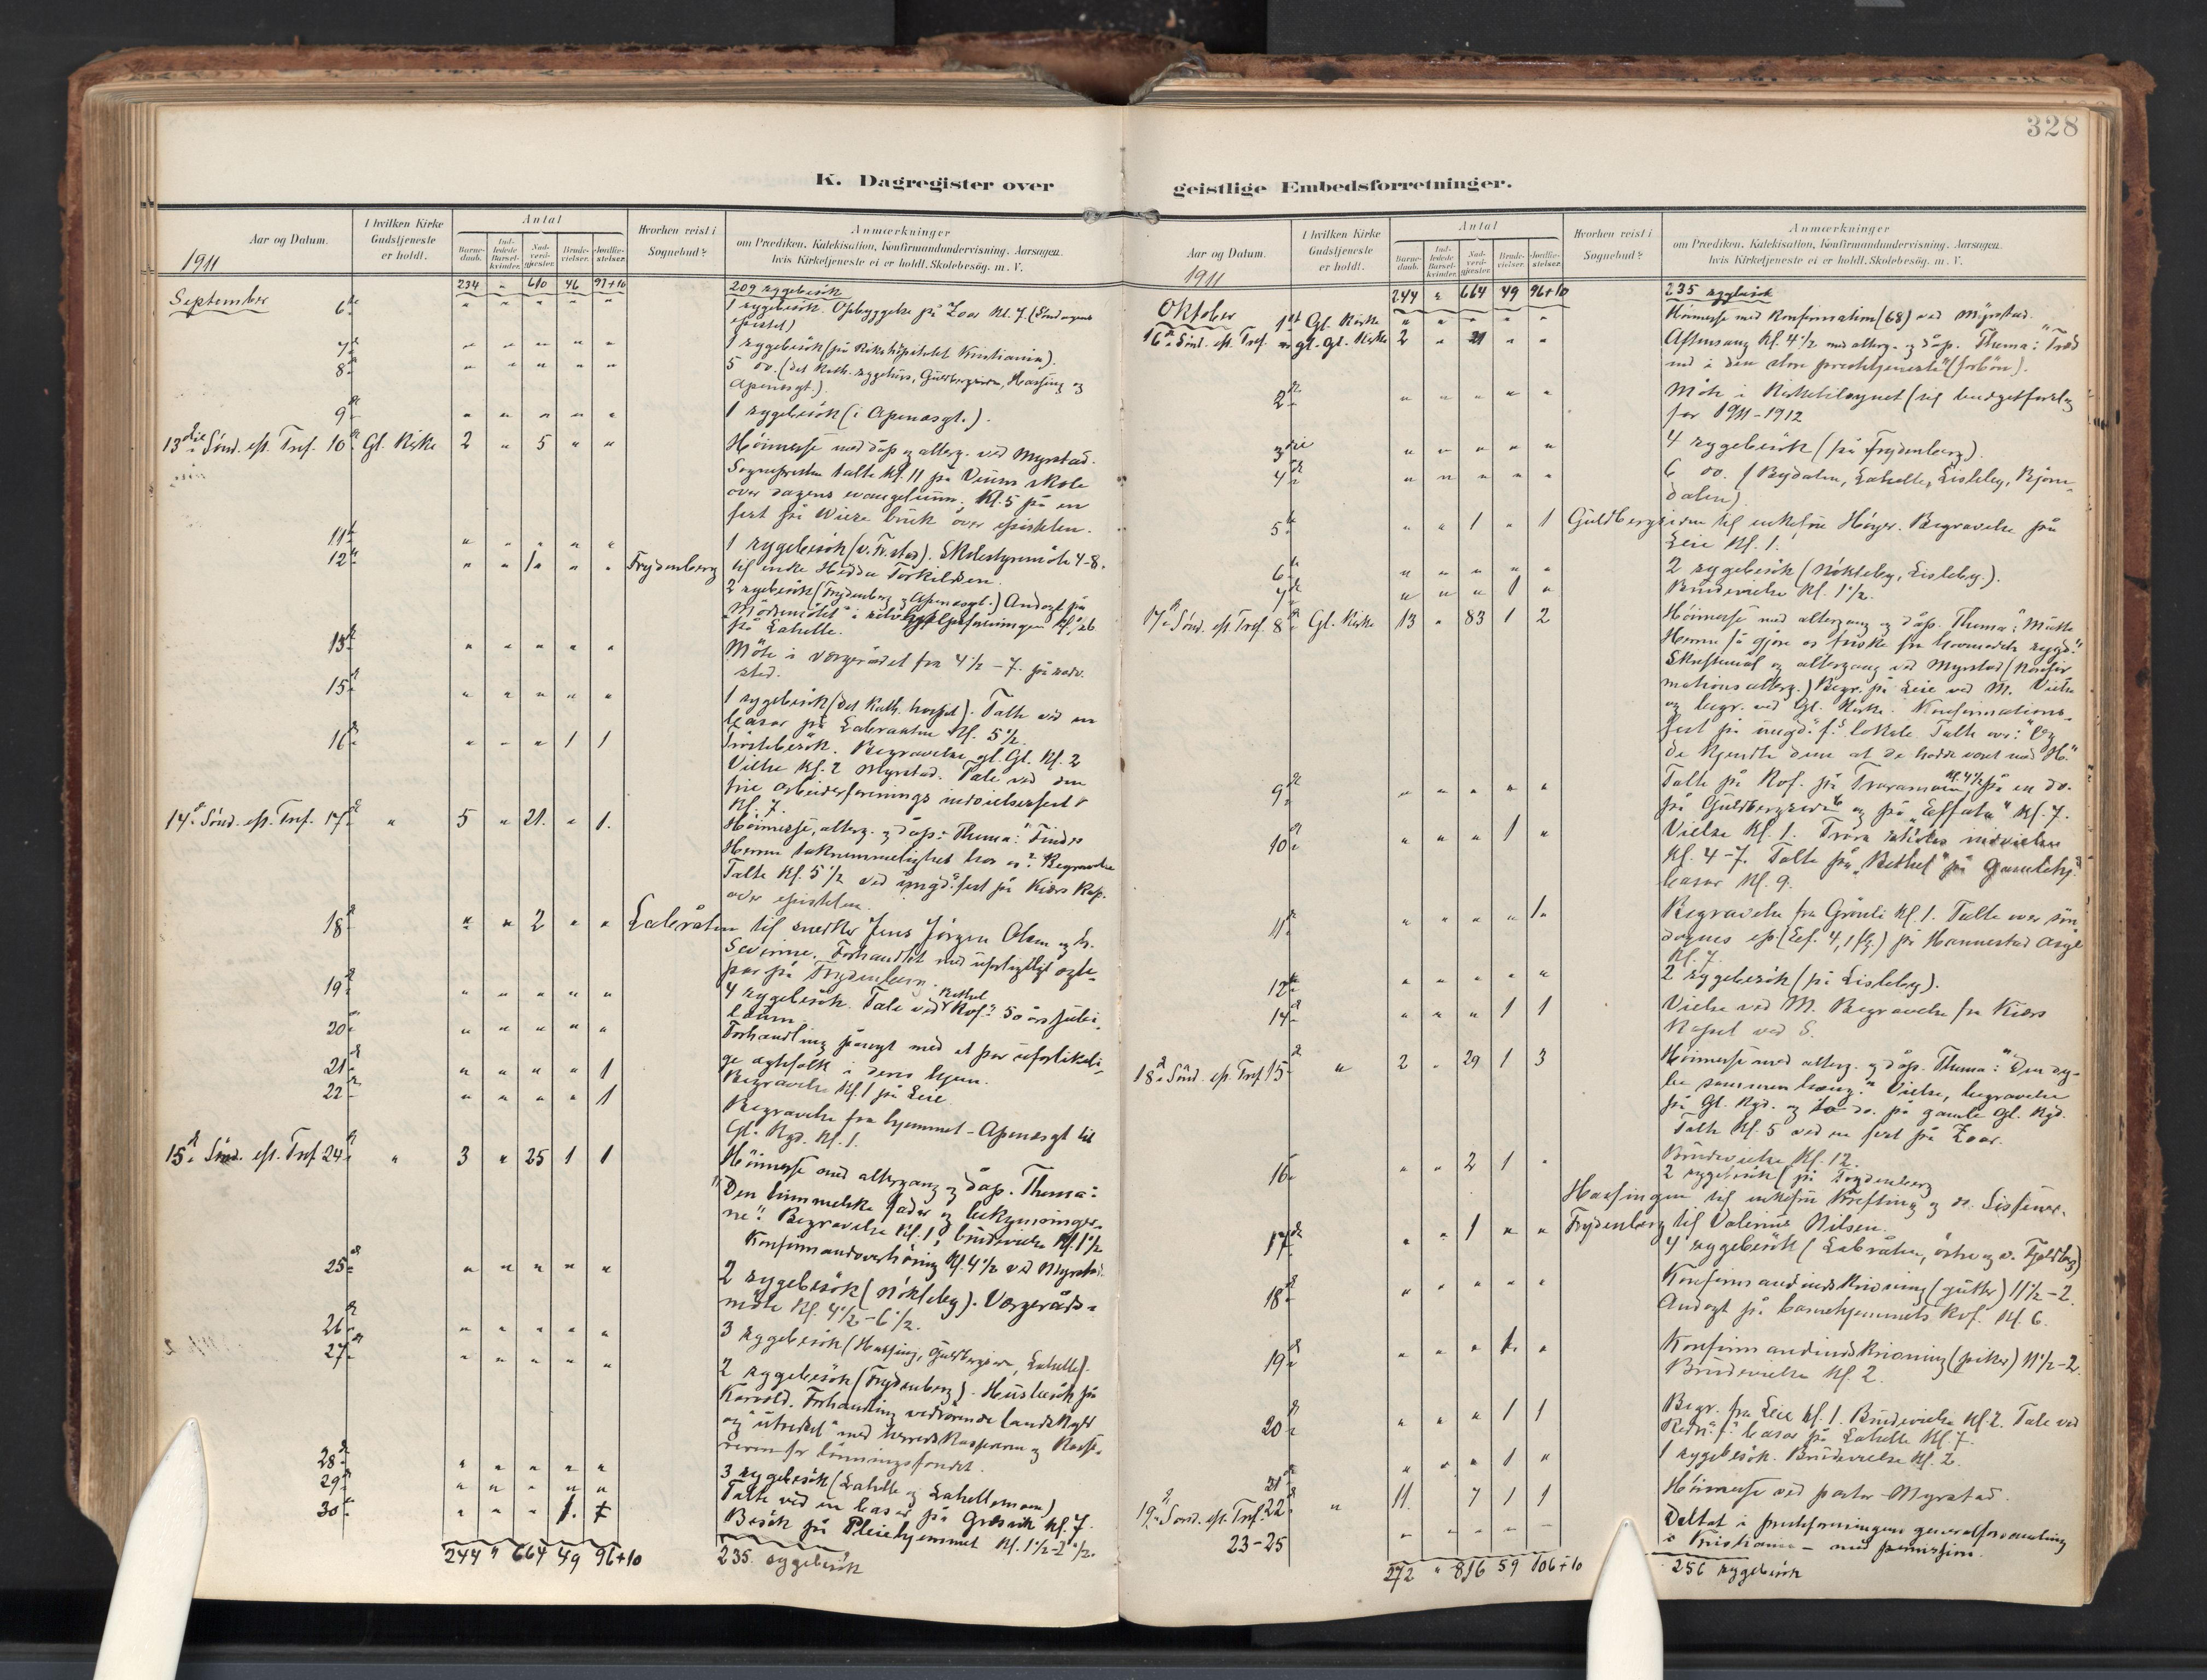 328
K. Dagregister over
geistlige Embedsforretninger.
Aar og Datum.
I hvilken Kirke
Gudstjeneste
er holdt.
Antal
Barne-
daab.
Ind-
ledede
Barsel-
kvinder.
Nad-
verd-
gjester.
Brude-
vielser.
Jordfæ-
stelser.
Hvorhen reist i
Sognebud?
Anmærkninger
om Prædiken, Katekisation, Konfirmandundervisning. Aarsagen.
hvis Kirketjeneste ei er holdt. Skolebesøg. m. V.
1911
234 " 610 46 97+10 209 sygebesök
September 6te " " " " " 1 sygebesök. Opbyggelse på Zoar Kl. 7. (Söndagens
epistel)
7de " " " " " 1 sygebesök (på Rikshospitalet Kristiania).
8de " " " " " 5 do. (det Kath. sygehus, Guldbergsiden, Hassing og
Apenesgt.)
9de " " " " " 1 sygebesök (i Apenesgt.).
13die Sönd. eft. Tref. 10de Gl. Kirke 2 " 5 " " Höimesse med dåp og alterg. ved Myrstad.
Sognepresten talte Kl. 11 på Veums skole
over dagens evangelium. Kl. 5 på en
fest på Wiese bruk over epistelen.
11te " " " " " 1 sygebesök (v. Fr.stad). Skolestyremöte 4-8.
12te " " 1 " " Frydenberg til enke Hedda Torkildsen.
2 sygebesök (Frydenberg og Apenesgt.) Andagt på
på Lahelle.
13de " " " " " Möte i vergerådet fra 4½ - 7. på rådv.
sted.
15de " " " " " 1 sygebesök (det Kath. hospit.). Talte ved en
basar på Labraaten Kl. 5½.
16de " " " 1 1 Begravelse gl. Gl. Kl. 2
Vielse Kl. 2 Myrstad. Tale ved den
frie arbeiderforenings indvielsesfest
Kl. 7.
14de Sönd. eft. Tref. 17de " 5 " 21 " 1. Höimesse, alterg. og dåp. Thema: "Finder
Herren taknemmelighet hos os?" Begravelse
Talte Kl. 5½ ved ungd. fest på Kiærs Kap.
over epistelen.
18de " " 2 " " Labråten til snedker Jens Jörgen Olsen og h.
Severine. Forhandlet med uforligeligt egte-
par på Frydenberg.
19de " " " " " 4 sygebesök. Tale ved Bethel Kof. 50 års jubi-
læum.
20de " " " " " Forhandling påny med et par uforlikeli-
ge egtefolk i deres hjem.
21de " " " " 1 Begravelse Kl. 1 på Leie
22de " " " " 1 Begravelse fra hjemmet - Apenesgt til
Gl. Kgd. Kl. 1.
15de Sönd. eft. Tref 24de " 3 " 25 1 1 Höimesse med altergang og dåp. Thema:
"Den himmelske fader og bekymringer-
ne". Begravelse Kl. 1, brudevielse Kl. 1½
Konfirmandoverhöring Kl. 4½ ved Myrstad.
25de " " " " " 2 sygebesök (Nökleby). Vergeråds-
möte Kl. 4½ - 6½.
26de " " " " " 3 sygebesök (Hassing, Guldbergsiden, Lahelle).
27de " " " " " 2 sygebesök (Frydenberg). Husbesök på
Forhandling vedrörende
og "utredsel" med herredskassereren og Kasse-
reren for lönningsfondet.
28de " " " " " 3 sygebesök (Lahelle og Lahellemoen)
29de " " " " " Talte ved en basar på Gresvik Kl. 7.
30te " " " 1. Besök på Pleiehjemmet Kl. 1½-2½.
244 " 664 49 96+10 235 sygebesök
Aar og Datum.
I hvilken Kirke
Gudstjeneste
er holdt.
Antal
Barne-
daab.
Ind-
ledede
Barsel-
kvinder.
Nad-
verd-
gjester.
Brude-
vielser.
Jordfæ-
stelser.
Hvorhen reist i
Sognebud?
Anmærkninger
om Prædiken, Katekisation, Konfirmandundervisning. Aarsagen.
hvis Kirketjeneste ei er holdt. Skolebesøg. m. V.
1911
244 " 664 49 96+10 235 sygebesök
Oktober 1ste Gl. Kirke " " " " " Höimesse med Konfirmation (68) ved Myrstad.
16de Sönd. eft. Tref. gl. Gl. Kirke 2 " " " Aftensang Kl. 4½ med alterg. og dåp. Thema: "Træd
ind i den store prestetjeneste" (forbön).
2den " " " " " Möte i Kirketilsynet (til budgetforslag
for 1911-1912
3die " " " " " 4 sygebesök (på Frydenberg).
4de " " " " " 6 do. (Bydalen, Lahelle, Lisleby, Bjørn-
dalen)
5te " " 1 " 1 Guldbergsiden til enkefru Höyer. Begravelse på
Leie Kl. 1.
6te " " " " " 2 sygebesök (Nökleby, Lisleby.).
7de " " " 1 " Brudevielse Kl. 1½.
17de Sönd. eft. Tref. 8de Gl. Kirke 13 " 83 1 2 Höimesse med altergang og dåp. Thema: "Måtte
Herren få gjöre os friske fra hovmodets syge."
Skriftemål og altergang ved Myrstad (Konfir
mationsalterg.) Begr. på Leie ved M. Vielse
og begr. ved Gl. Kirke. Konfirmations-
fest på ungd. f.s lokale Talte over: "Og
de kjendte dem at de hadde været med H."
9de " " " " " Talte på Kof. på Traramoen Kl. 4½, på en do.
på Guldbergsiden 6 og på "Effata" Kl. 7.
10de " " " 1 " Vielse Kl. 1. Trara skoles indvielse
Kl. 4-7. Talte på "Bethel" på Gamlehj.s
basar Kl. 9.
11te " " " " 1 Begravelse fra Grönli Kl. 1. Talte over sön
dagens ep. (Ef. 4, 1 flg.) på Hannestad asyl
Kl. 7.
12te " " " " " 2 sygebesök (på Lisleby).
14de " " " 1 1 Vielse ved M. Begravelse fra Kiærs
Kapel ved S.
18de Sönd. eft. Tref 15de " 2 " 29 1 3 Höimesse med alterg. og dåp. Thema: "Den dy-
be sammenhæng". Vielse, begravelse
på Gl. Kgd. og to do. på gamle Gl. Kgd.
Talte Kl. 5 ved en fest på Zoar.
16de " " 2 1 " Brudevielse Kl. 12.
2 sygebesök (på Frydenberg
Hassingen til enkefru Krefting og
17de " " 1 " " Frydenberg til Valerius Nilsen.
4 sygebesök (Labråten, östre og v. Fjeldberg)
18de " " " " " Konfirmandindskrivning (gutter) 11½-2.
Andagt på barnehjemmets Kof. Kl. 6.
19de " " " 1. " Konfirmandindskrivning (piker) 11½-2.
Brudevielse Kl. 2.
20de " " " 1 1 Begr. fra Leie Kl. 1. Brudevielse Kl. 2. Tale ved
basar på Lahelle Kl. 7.
21de " " " 1 " 1 sygebesök. Brudevielse Kl. 2.
19de Sönd. eft. Tref. 22de " 11. 7 1 1 Höimesse ved pastor Myrstad.
23-25 " " " " " Deltat i presteforeningens generalforsamling
i Kristiania - med permission.
272 " 816 59 106+10 256 sygebesök